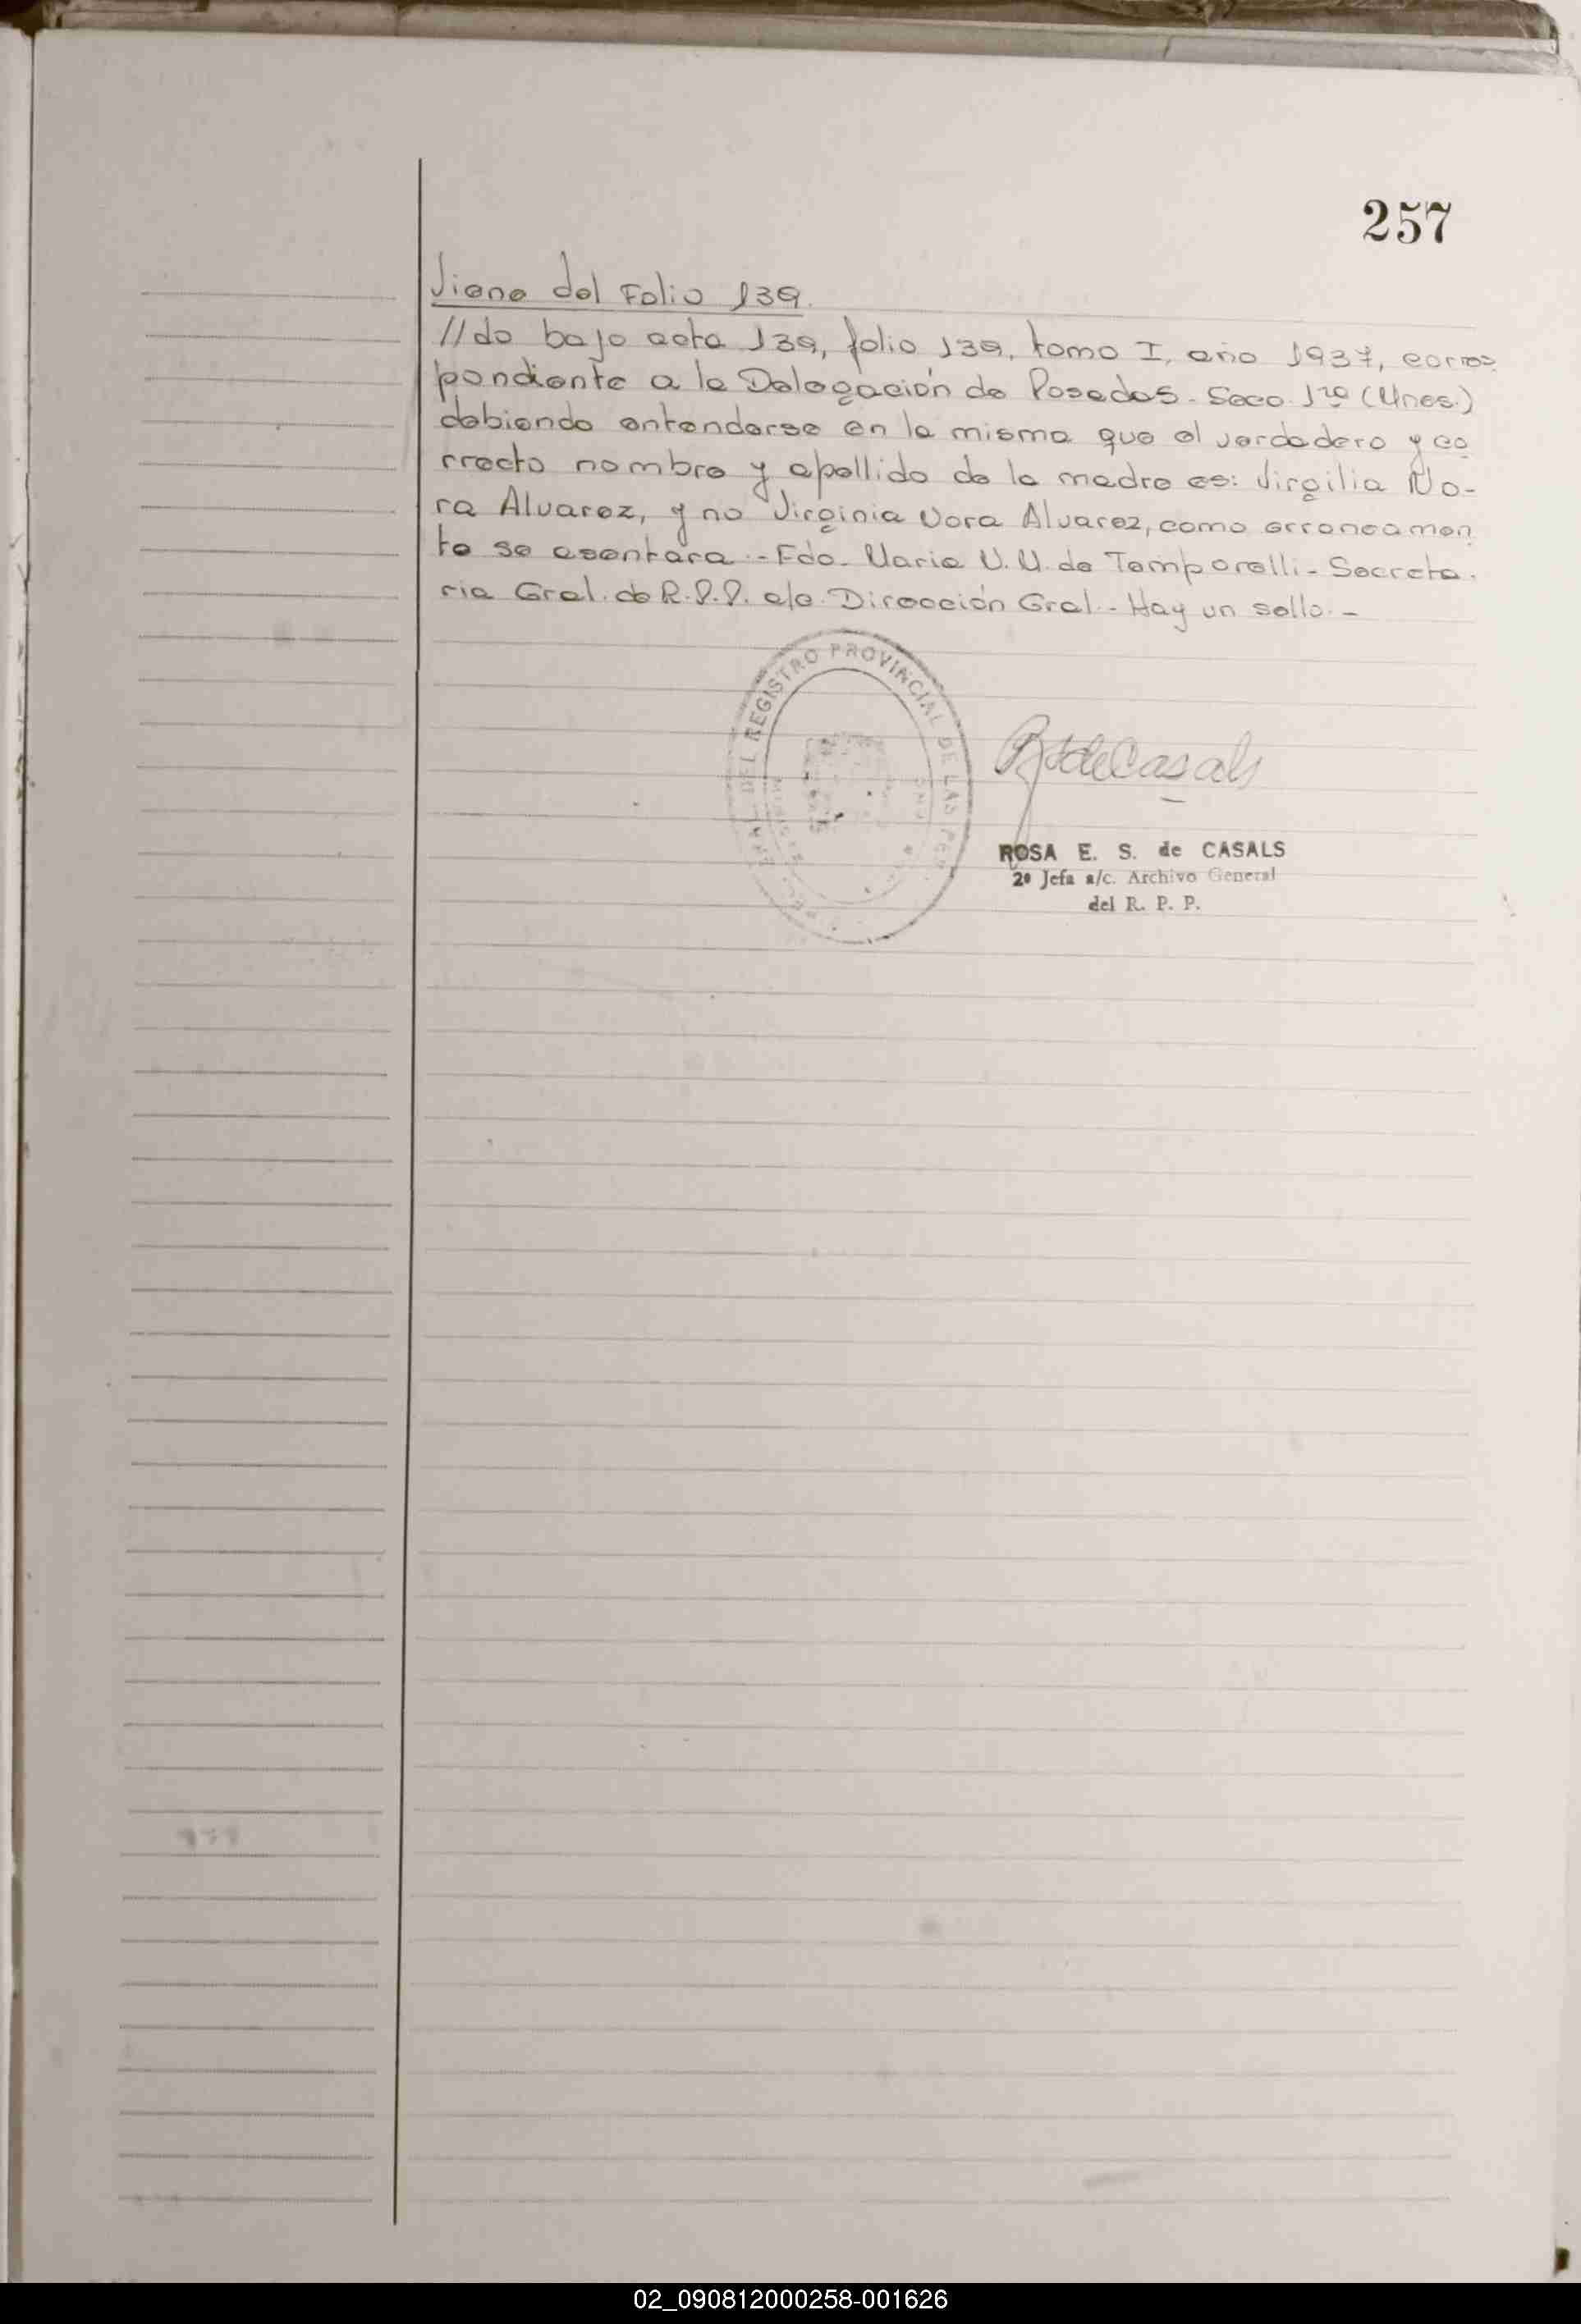 257
Viene del Folio 139.
//do bajo acta 139, folio 139, tomo I, año 1937, corres
pondiente a la Delegación de Posadas - Secc. 1ra (Mnes.)
debiendo entenderse en la misma que el verdadero y co
rrecto nombre y apellido de la madre es: Virgilia No-
ra Alvarez, y no Virginia Nora Alvarez, como erroneamen
te se asentara.- Fdo. Maria de Temporelli - Secreta.
ria Gral. de R.P.P. a/c. Dirección Gral.- Hay un sello.-
DEL REGISTRO PROVINCIAL DE LAS PER
R S de Casals
ROSA E. S. de CASALS
2º Jefa a/c. Archivo General
del R. P. P.
02_090812000258-001626